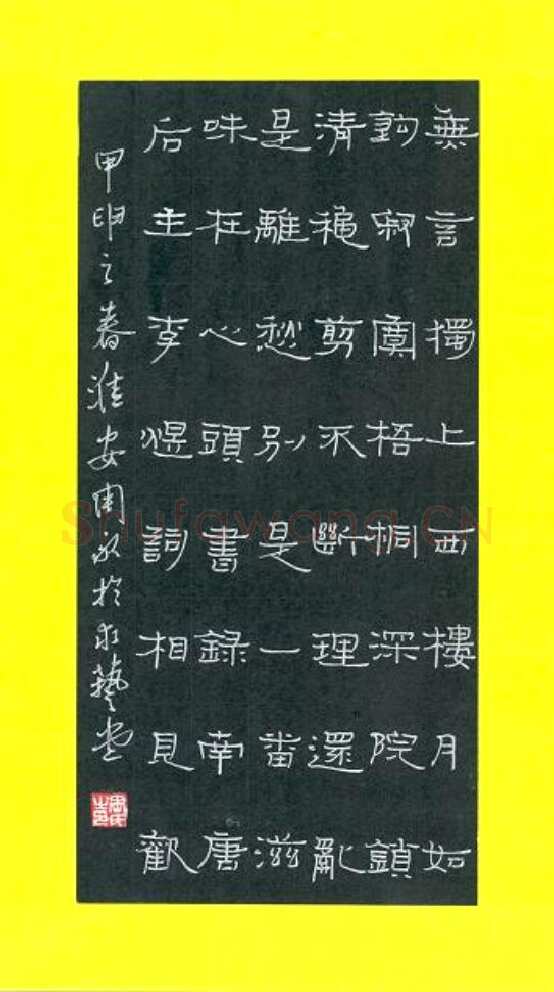 無言獨上西樓月如
鈎寂寞梧桐深院鎖
清秋剪不斷理還亂
是離愁別是一番滋
味在心頭書録南唐
后主李煜詞相見歡
甲申之春淮安周永於求藝堂
Shufawang.CN